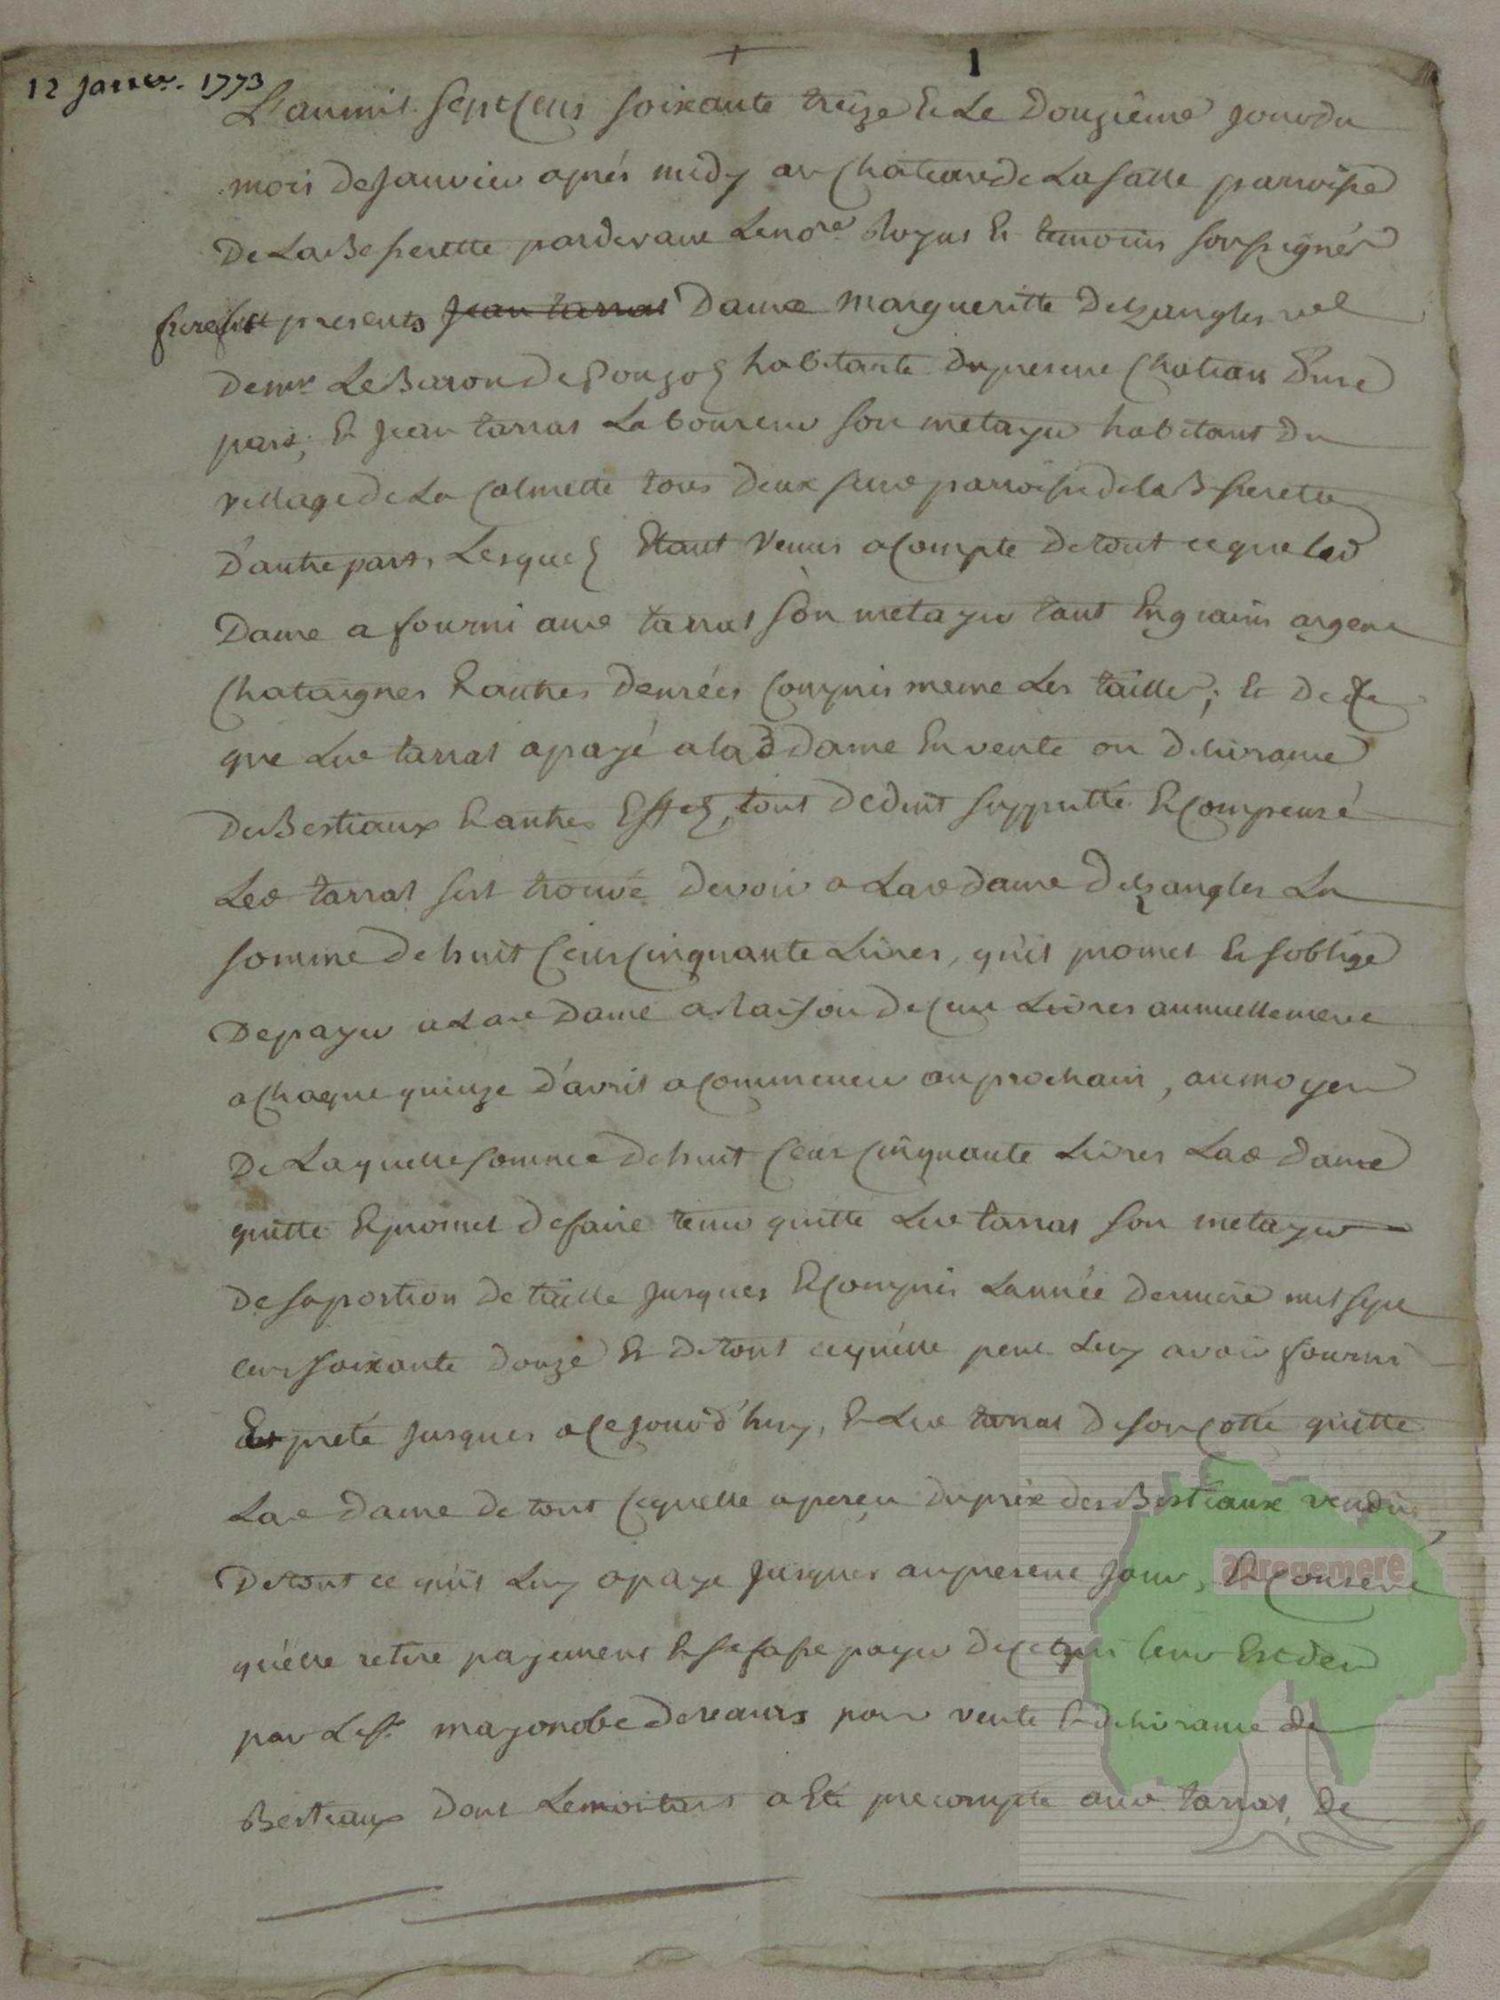 + 1
12 Janvr. 1773
L'an mil sept cens soixante treize et le douzième jour du
mois de janvier aprés midy au chateau de La salle parroisse
de La Besserette pardevant Le nore Royal et temoins soussignés
furent presents Jean tarral Dame Margueritte Delzangles vel
de mr Le Baron de Pouzols habitante du present chateau d'une
part, et Jean tarral Laboureur son metayer habitant du
village de La Calmette tous deux susd parroisse de la Besserette
d'autre part, Lesquels Etant venus a compte de tout ce que lad
Dame a fourni aud tarral son metayer tant En grains argent
chataignes Et autres denrées compris meme Les tailles; Et de ce
que Led tarral a payé a lad dame En vente ou delivrance
de Bestiaux Et autres Effets, tout deduit supputté Et compensé
Led tarral sest trouvé devoir a Lad dame Delzangles La
somme de huit cens cinquante Livres, qu'il promet Et soblige
de payer a Lad Dame a Raison de cent Livres annuellement
a chaque quinze d'avril a commencer au prochain, au moyen
de Laquelle somme de huit cens cinquante Livres Lad dame
quitte Et promet de faire tenir quitte Led tarral son metayer
de sa portion de taille jusques Et compris Lannée derniere mil sept
cens soixante douze Et de tout ce qu'elle peut Luy avoir fourni
Et preté jusques a ce jourd'huy, Et Led tarral de son cotté quitte
Lad Dame de tout ce quelle a perçu du prix des Bestiaux vendus
de tout ce qu'il Luy a payé jusques au present jour, Et consent
qu'elle retire payement Et se fasse payer de ce qui leur Est deu
par Le sr mazonobe de reaus pour vente Et delivrance de
Bestiaux dont Le montant a Eté precompté aud tarral, de
apregemere